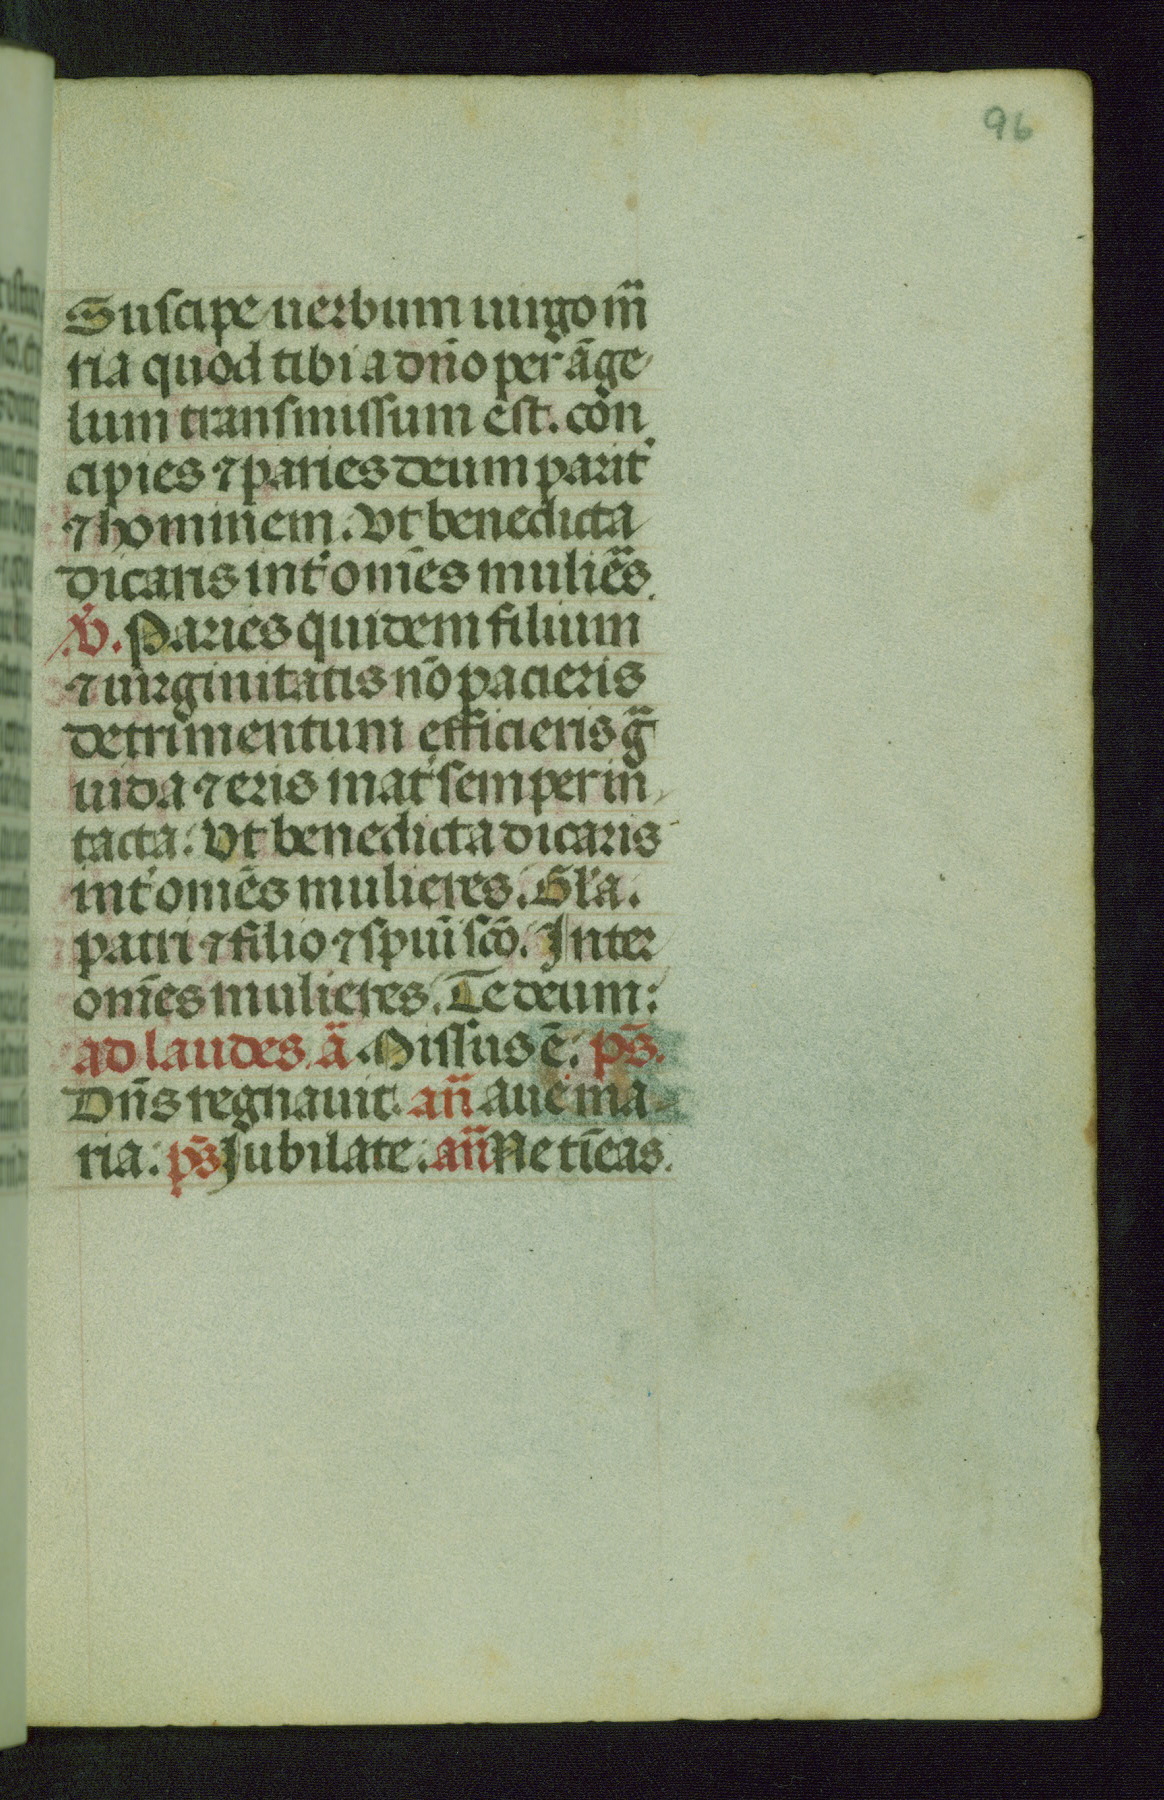 96
Suscipe uerbum uirgo m̃
ria quod tibi a dño per ãge
lum transmissum est. con
cipies ⁊ paries deum parit᷑
⁊ hominem. Vt benedicta
dicaris int᷑ om̃es mulie᷑s.
℣. Paries quidem filium
⁊ uirginitatis nõ pacieris
detrimentum efficieris g̃
uida ⁊ eris mat᷑ semper in
tacta. Vt benedicta dicaris
int᷑ om̃es mulieres. Gl̃a.
patri ⁊ filio ⁊ spũi scõ. Inter
om̃es mulieres. Te deum:
ad laudes. ã. Missus ẽ. ps̃.
Dñs regnauit. añ aue ma
ria. ps̃ Jubilate. añ Ne tĩeas.